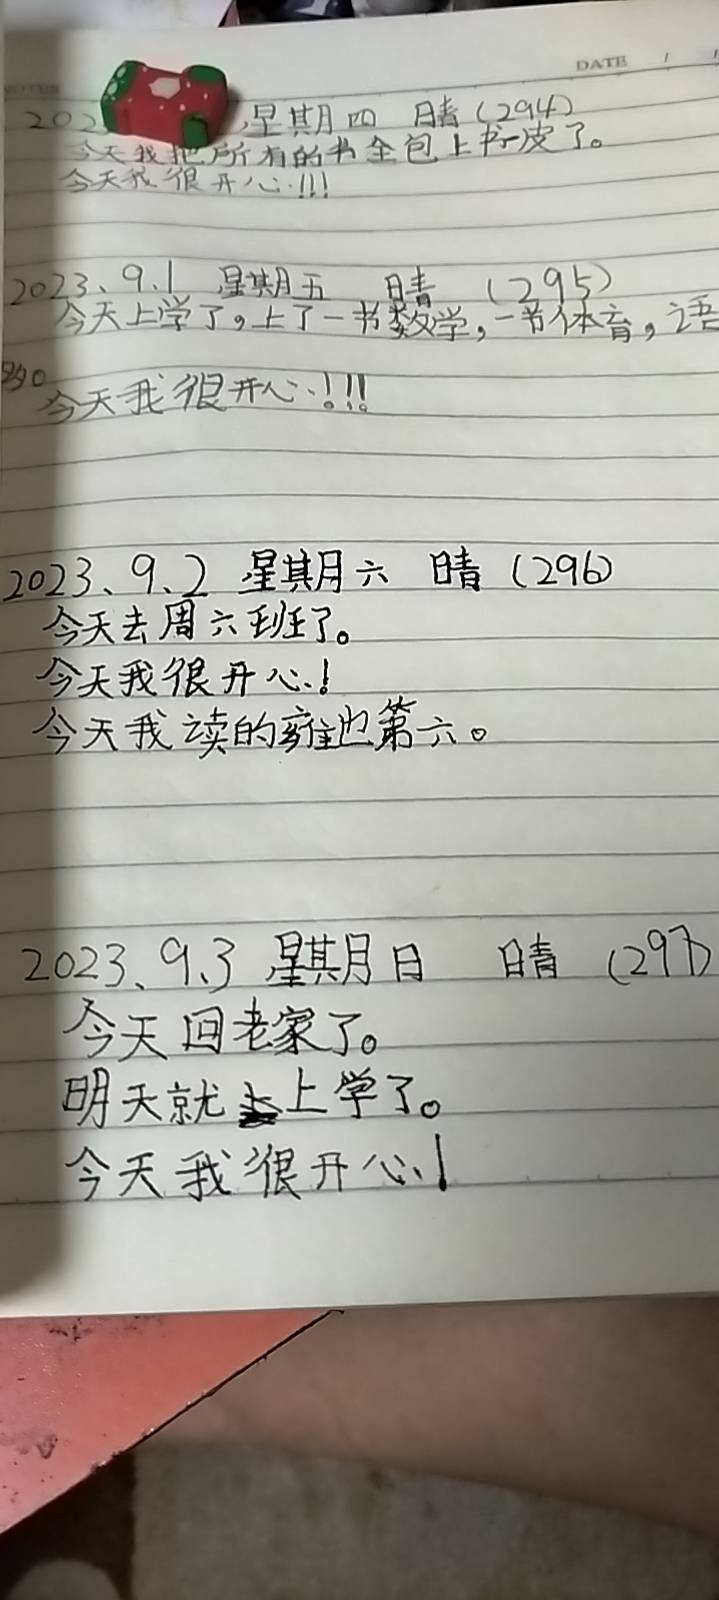 NOTES
DATE / /
202 星期四 晴（294）
今天我把所有的书全包上书皮了。
今天我很开心!!!
2023、9.1 星期五 晴 （295）
今天上学了，上了一书数学，一节体育，语
今天我很开心!!!
2023、9、2 星期六 晴（296）
今天去周六班了。
今天我很开心!
今天我读的雍也第六。
2023、9、3 星期日 晴 （297）
今天回老家了。
明天就上学了。
今天我很开心!